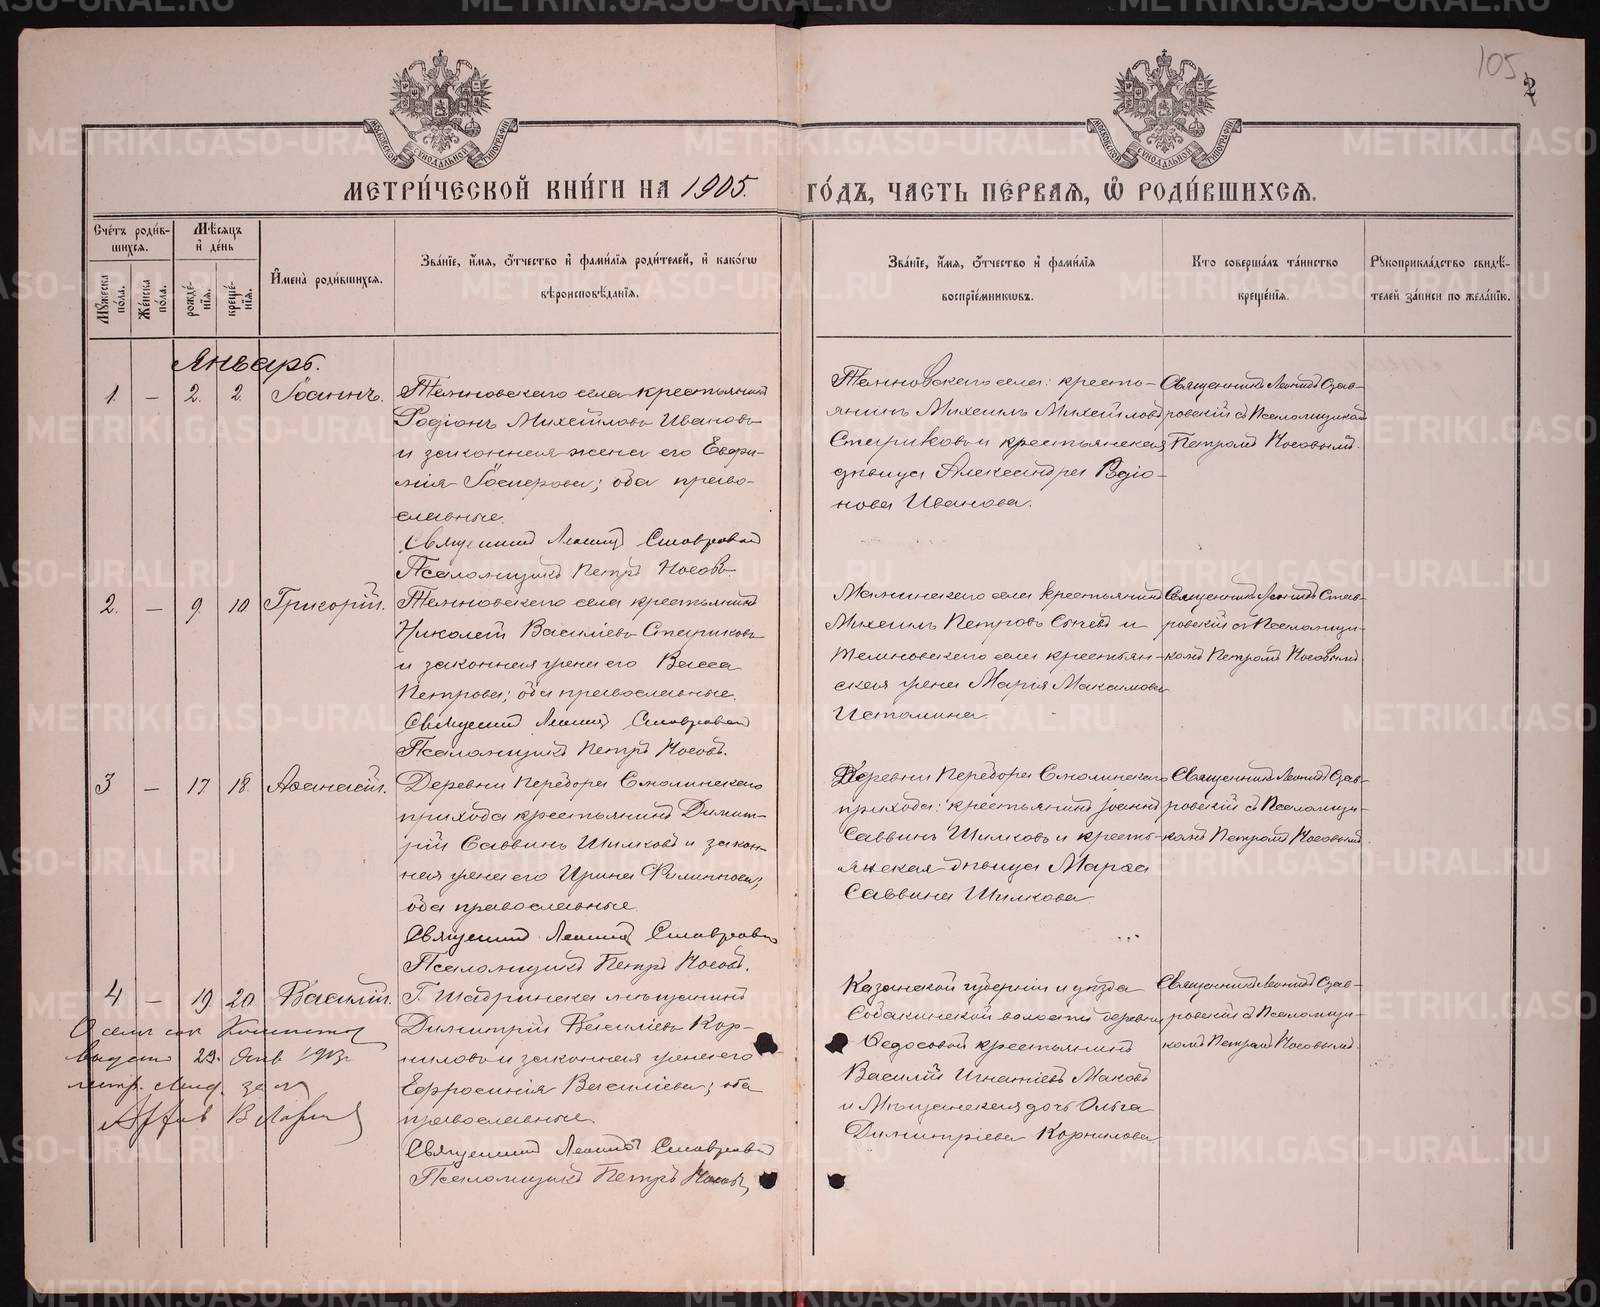 105
2
МОСКОВСКОЙ СѴНОДАЛЬНОЙ ТИПОГРАФІИ
МОСКОВСКОЙ СѴНОДАЛЬНОЙ ТИПОГРАФІИ
МЕТРИ́ЧЕСКОЙ КНИ́ГИ НА 1905. ГО́ДЪ, ЧАСТЬ ПЕ́РВАЯ, Ѽ РОДИ́ВШИХСЯ.
Сче́тъ роди́в-
шихся.
Мѣ́сяцъ
и҆ де́нь
Мꙋ́жеска по́ла.
Же́нска по́ла.
рожде́-
нїя.
креще́-
нїя.
И҆мена̀ роди́вшихся.
Зва́нїе, и҆́мя, ѻ҆́тчество и҆ фами́лїя роди́телей, и҆ како́гѡ
вѣроисповѣ́данїя.
Зва́нїе, и҆́мя, ѻ҆́тчество и҆ фами́лїя
воспрїе́мникѡвъ.
Кто соверша́лъ та́инство
креще́нїя.
Рꙋкоприкла́дство свидѣ́-
телей за́писи по жела́нїю.
Январь.
1. — 2. 2. Іоаннъ.
Темновскаго села крестьянинъ
Родіонъ Михайловъ Ивановъ
и законная жена его Евфи-
мія; оба право-
славные.
Священникъ Леонидъ Ставровскій
Псаломщикъ Петръ Носовъ.
Темновскаго села: кресть-
янинъ Михаилъ Михайловъ
Стариковъ и крестьянская
дѣвица Александра Родіо-
нова Иванова.
Священникъ Леонидъ Став-
ровскій съ Псаломщикомъ
Петромъ Носовымъ.
2. — 9. 10 Григорій.
Темновскаго села крестьянинъ
Николай Василіевъ Стариковъ
и законная жена его Васса
Петрова; оба православные.
Священникъ Леонидъ Ставровскій
Псаломщикъ Петръ Носовъ.
села крестьянинъ
Михаилъ Петровъ и
Темновскаго села крестьян-
ская жена Марія Максимова
Истомина.
Священникъ Леонидъ Став-
ровскій съ Псаломщи-
комъ Петромъ Носовымъ
3 — 17 18 Аѳанасій.
Деревни Перебора Смолинскаго
прихода крестьянинъ Димит-
рій Саввинъ Шилковъ и закон-
ная жена его Ирина Филиппова;
оба православные.
Священникъ Леонидъ Ставровскій
Псаломщикъ Петръ Носовъ.
Деревни Перебора Смолинскаго
прихода: крестьянинъ Іоаннъ
Саввинъ Шилковъ и кресть-
янская дѣвица Марѳа
Саввина Шилкова.
Священникъ Леонидъ Став-
ровскій съ Псаломщи-
комъ Петромъ Носовымъ
4 — 19 20 Василій.
Г. Шадринска мѣщанинъ
Димитрій Василіевъ Кор-
ниловъ и законная жена его
Ефросинія Василіева; оба
православные
Священникъ Леонидъ Ставровскій
Псаломщикъ Петръ Носовъ
Казанской губерніи и уѣзда
Собакинской волости деревни
Ѳедосовой крестьянинъ
Василій Игнатіевъ Маковъ
и Мѣщанская дочь Ольга
Димитріева Корнилова
Священникъ Леонидъ Став-
ровскій съ Псаломщи-
комъ Петромъ Носовымъ
METRIKI.GASO-URAL.RU